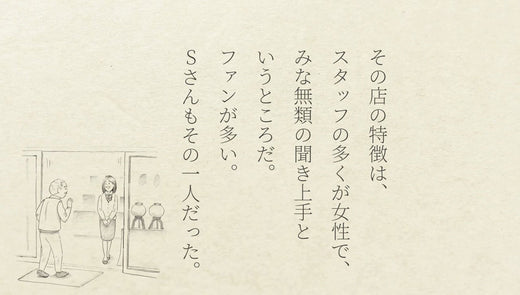 その店の特徴は、
スタッフの多くが女性で、
みな無類の聞き上手と
いうところだ。
ファンが多い。
Sさんもその一人だった。